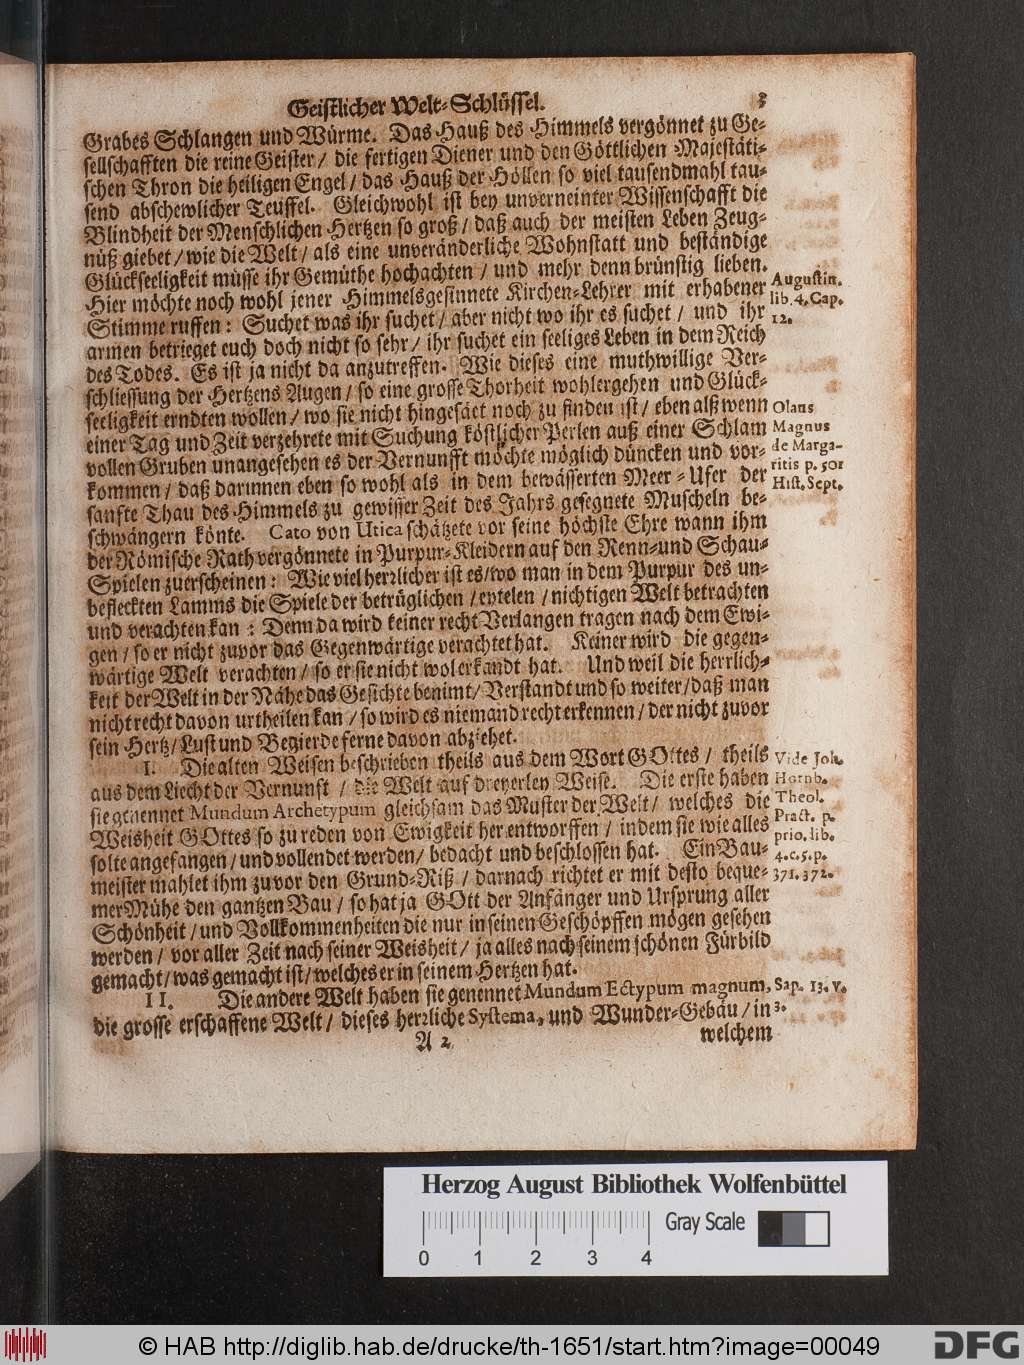 Geistlicher Welt-Schlüssel. 3
Grabes Schlangen und Würme. Das Hauß des Himmels vergönnet zu Ge-
sellschafften die reine Geister / die fertigen Diener und den Göttlichen Majestäti-
schen Thron die heiligen Engel / das Hauß der Höllen so viel tausendmahl tau-
send abschewlicher Teuffel. Gleichwohl ist bey unverneinter Wissenschafft die
Blindheit der Menschlichen Hertzen so groß / daß auch der meisten Leben Zeug-
nüß giebet / wie die Welt / als eine unveränderliche Wohnstatt und beständige
Glückseeligkeit müsse ihr Gemüthe hochachten / und mehr denn brünstig lieben.
Hier möchte noch wohl jener Himmelsgesinnete Kirchen-Lehrer mit erhabener
Stimme ruffen: Suchet was ihr suchet / aber nicht wo ihr es suchet / und ihr
armen betrieget euch doch nicht so sehr / ihr suchet ein seeliges Leben in dem Reich
des Todes. Es ist ja nicht da anzutreffen. Wie dieses eine muthwillige Ver-
schliessung der Hertzens Augen / so eine grosse Thorheit wohlergehen und Glück-
seeligkeit erndten wollen / wo sie nicht hingesäet noch zu finden ist / eben alß wenn
einer Tag und Zeit verzehrete mit Suchung köstlicher Perlen auß einer Schlam
vollen Gruben unangesehen es der Vernunfft möchte möglich düncken und vor-
kommen / daß darinnen eben so wohl als in dem bewässerten Meer-Ufer der
sanfte Thau des Himmels zu gewisser Zeit des Jahrs gesegnete Muscheln be-
schwängern könte. Cato von Utica schätzete vor seine höchste Ehre wann ihm
der Römische Rath vergönnete in Purpur-Kleidern auf den Renn-und Schau-
Spielen zuerscheinen: Wie viel herrlicher ist es / wo man in dem Purpur des un-
befleckten Lamms die Spiele der betrüglichen / eytelen / nichtigen Welt betrachten
und verachten kan: Denn da wird keiner recht Verlangen tragen nach dem Ewi-
gen / so er nicht zuvor das Gegenwärtige verachtet hat. Keiner wird die gegen-
wärtige Welt verachten / so er sie nicht wol erkandt hat. Und weil die herrlich-
keit der Welt in der Nähe das Gesichte benimt / Verstandt und so weiter / daß man
nicht recht davon urtheilen kan / so wird es niemand recht erkennen / der nicht zuvor
sein Hertz / Lust und Begierde ferne davon abziehet.
I. Die alten Weisen beschrieben theils aus dem Wort GOttes / theils
aus dem Liecht der Vernunft / die Welt auf dreyerley Weise. Die erste haben
sie genennet Mundum Archetypum gleichsam das Muster der Welt / welches die
Weisheit GOttes so zu reden von Ewigkeit her entworffen / indem sie wie alles
solte angefangen / und vollendet werden / bedacht und beschlossen hat. Ein Bau-
meister mahlet ihm zuvor den Grund-Riß / darnach richtet er mit desto beque-
mer Mühe den gantzen Bau / so hat ja GOtt der Anfänger und Ursprung aller
Schönheit / und Vollkommenheiten die nur in seinen Geschöpffen mögen gesehen
werden / vor aller Zeit nach seiner Weisheit / ja alles nach seinem schönen Fürbild
gemacht / was gemacht ist / welches er in seinem Hertzen hat.
II. Die andere Welt haben sie genennet Mundum Ectypum magnum,
die grosse erschaffene Welt / dieses herrliche Systema, und Wunder-Gebäu / in
A 2 welchem
Augustin.
lib. 4. Cap.
12.
Olaus
Magnus
de Marga-
ritis p. 501
Hist. Sept.
Vide Joh.
Hornb.
Theol.
Pract. p.
prio. lib.
4. c. 5. p.
371. 372.
Sap. 13. v.
3.
Herzog August Bibliothek Wolfenbüttel
Gray Scale
0 1 2 3 4
© HAB http://diglib.hab.de/drucke/th-1651/start.htm?image=00049
DFG